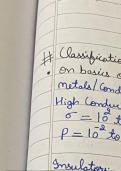 # Classificatio
on basics o
metals / Cond
High Condu
σ = 10² t
ρ = 10⁻² to
Insulators